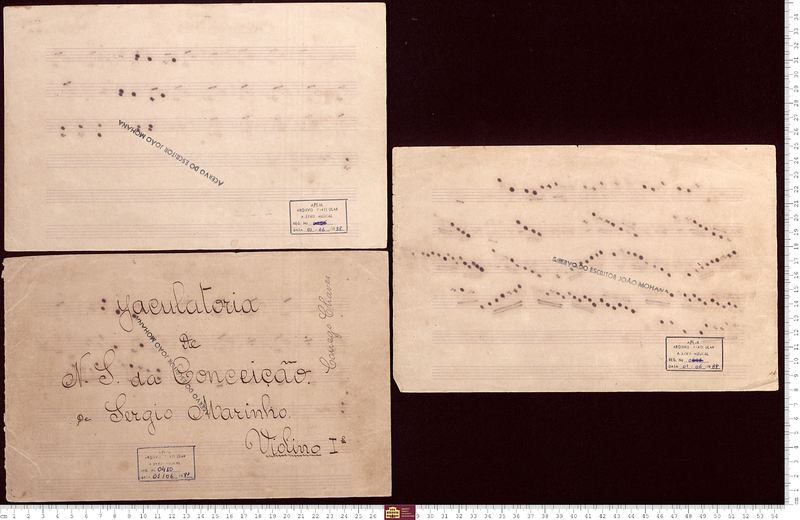 ACERVO DO ESCRITOR JOÃO MOHANA
APEM
ARQUIVO
ACERVO MUSICAL
REG. No.
DATA 01 - 06 -
Jaculatoria
de
N. S. da Conceição.
De Sergio Marinho.
Violino Iº
Conego Chaves
ACERVO DO ESCRITOR JOÃO MOHANA
APEM
ARQUIVO
ACERVO MUSICAL
REG. No. 0480
DATA 01 / 06 /
ACERVO DO ESCRITOR JOÃO MOHANA
APEM
ARQUIVO
ACERVO MUSICAL
REG. No.
DATA 01 - 06 -